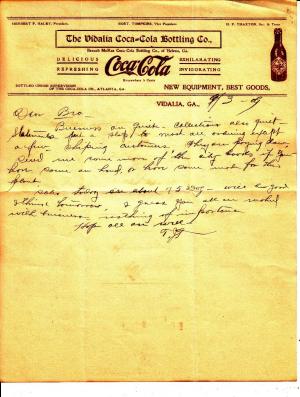 HERBERT P. HALEY, President.
ROBT. TOMPKINS, Vice President
D. F. THAXTON, Sec. & Treas.
The Vidalia Coca-Cola Bottling Co.,
Branch McRae Coca-Cola Bottling Co., of Helena, Ga.
DELICIOUS
REFRESHING
Coca-Cola
EXHILARATING
INVIGORATING
Everywhere 5 Cents
BOTTLED UNDER SUPERVISION
OF THE COCA-COLA CO., ATLANTA, GA.
NEW EQUIPMENT, BEST GOODS,
VIDALIA, GA., 9/3-09
Dear Bro
Business on quiet. Collections also quiet
to most all ordering except
a few shipping customers. They are paying
Send me some more of the city books if you
have some on hand, or have some sent for this
plant
sales today are about 75 - will be good
I guess you all are rushed
with business - nothing of importance
Hope all are well